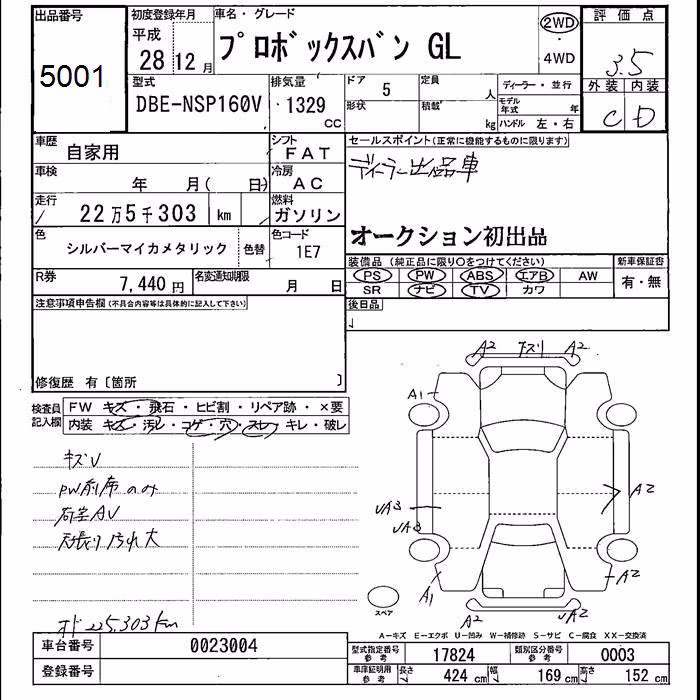 出品番号 初度登録年月 車名・グレード 評価点
5001 平成 28 12月 プロボックスバン GL 2WD ・ 4WD 3.5
外装 内装
C D
型式 排気量 ドア 定員 ディーラー・並行
DBE-NSP160V 1329 cc 5 人 モデル年式 年
形状 積載 kg ハンドル 左・右
車歴 自家用 シフト FAT セールスポイント(正常に機能するものに限ります)
車検 年 月( 日) 冷房 AC ディーラー出品車
走行 22万5千303 km 燃料 ガソリン
オークション初出品
色 シルバーマイカメタリック 色替 色コード 1E7
装備品(純正品に限り○をつけてください) 新車保証書
PS PW ABS エアB AW 有・無
SR ナビ TV カワ
R券 7,440円 名変通知期限 月 日
後日品
注意事項申告欄(不具合内容等は具体的に記入して下さい)
修復歴 有〔箇所 〕
検査員記入欄 FW キズ・飛石・ヒビ割・リペア跡・×要
内装 キズ・汚レ・コゲ・穴・スレ・キレ・破レ
キズV
PW前席のみ
荷室AV
天張り汚れ大
オド225,303km
A2 キズリ A2
A1
UA3
UA3
A2
A1 A2
A2 A2
スペア
A-キズ E-エクボ U-凹み W-補修跡 S-サビ C-腐食 XX-交換済
車台番号 0023004
登録番号
型式指定番号参考 17824 類別区分番号参考 0003
車庫証明用参考 長さ 424cm 幅 169cm 高さ 152cm